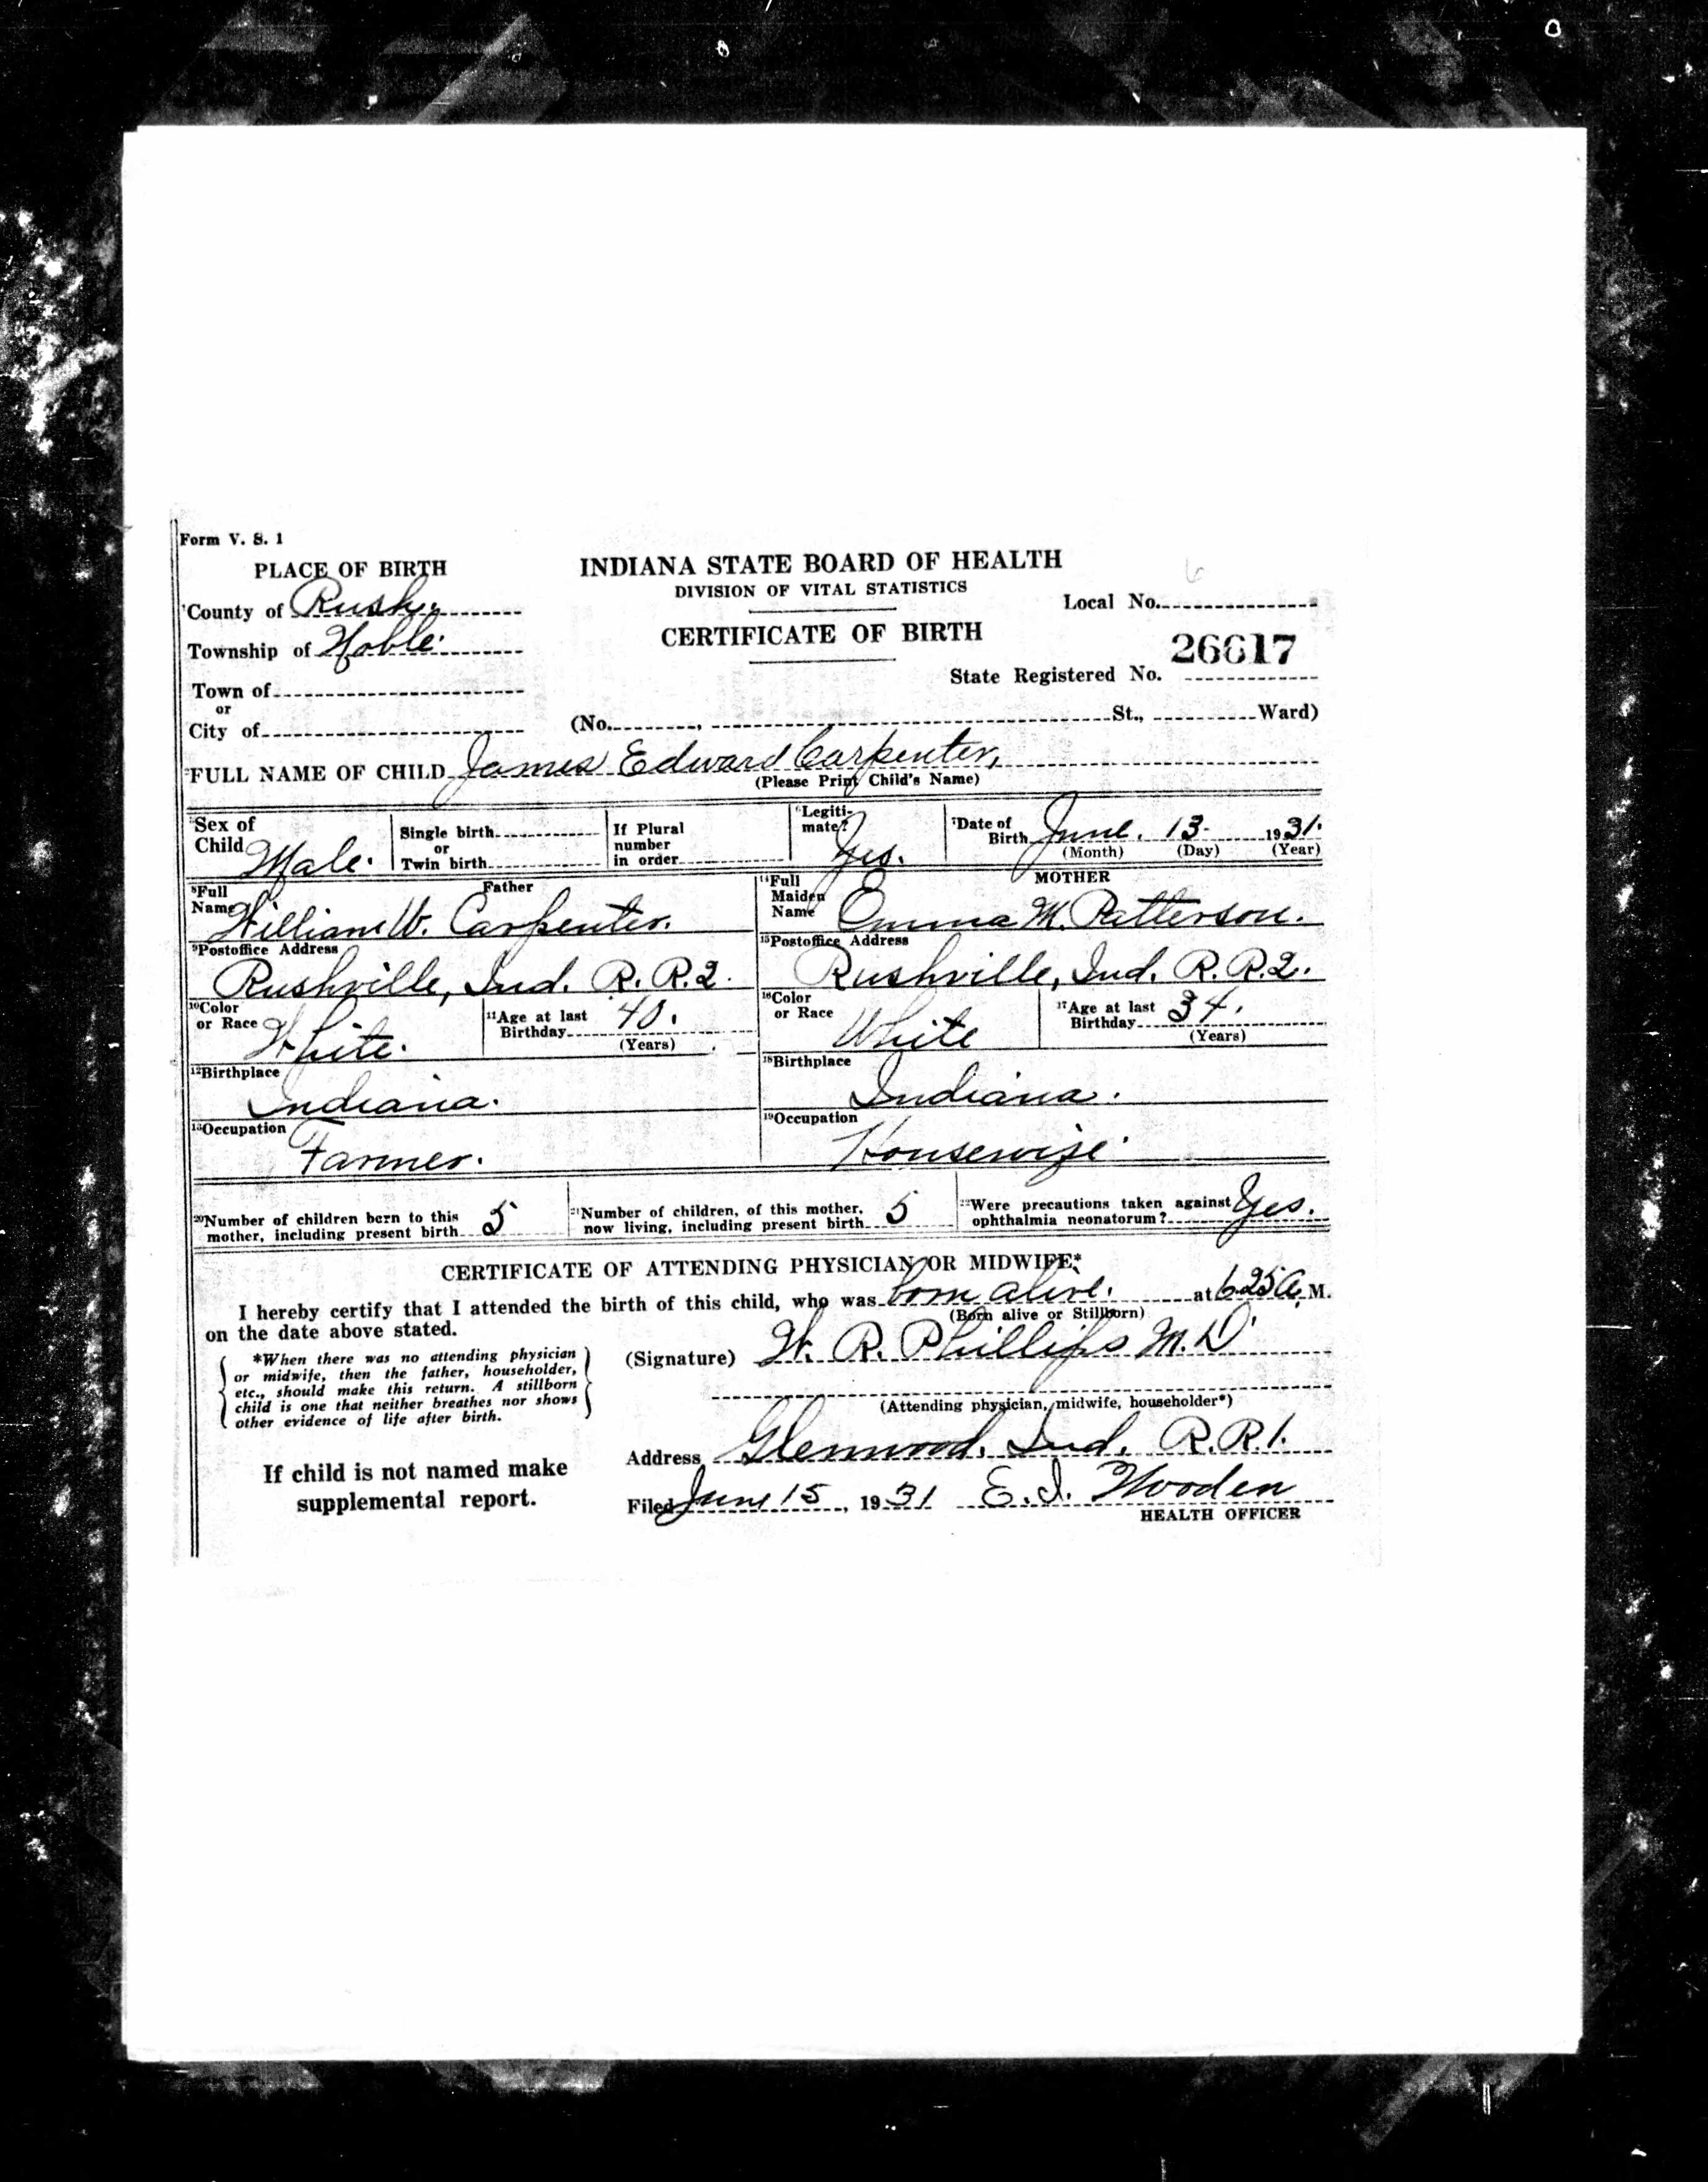 Form V. S. 1
PLACE OF BIRTH
INDIANA STATE BOARD OF HEALTH
DIVISION OF VITAL STATISTICS
County of Rush.
Local No.
Township of Noble.
CERTIFICATE OF BIRTH
26617
State Registered No.
Town of
or
City of
(No. , St., Ward)
FULL NAME OF CHILD James Edward Carpenter,
(Please Print Child's Name)
Sex of Child Male.
Single birth
or
Twin birth
If Plural
number
in order
6 Legiti-
mate? Yes.
7 Date of
Birth June. 13. 1931.
(Month) (Day) (Year)
8 Full Name Father
William W. Carpenter.
9 Postoffice Address
Rushville, Ind. R. R. 2.
10 Color
or Race White.
11 Age at last
Birthday 40.
(Years)
12 Birthplace
Indiana.
13 Occupation
Farmer.
14 Full
Maiden
Name MOTHER
Emma M. Patterson.
15 Postoffice Address
Rushville, Ind. R. R. 2.
16 Color
or Race White
17 Age at last
Birthday 34.
(Years)
18 Birthplace
Indiana.
19 Occupation
Housewife.
20 Number of children born to this
mother, including present birth 5
21 Number of children, of this mother,
now living, including present birth 5
22 Were precautions taken against
ophthalmia neonatorum? Yes.
CERTIFICATE OF ATTENDING PHYSICIAN OR MIDWIFE*
I hereby certify that I attended the birth of this child, who was born alive. at 6.25 A. M.
(Born alive or Stillborn)
on the date above stated.
*When there was no attending physician
or midwife, then the father, householder,
etc., should make this return. A stillborn
child is one that neither breathes nor shows
other evidence of life after birth.
(Signature) W. R. Phillips M. D.
(Attending physician, midwife, householder*)
Address Glenwood, Ind. R. R. 1.
If child is not named make
supplemental report.
Filed June 15, 1931 E. I. Wooden
HEALTH OFFICER